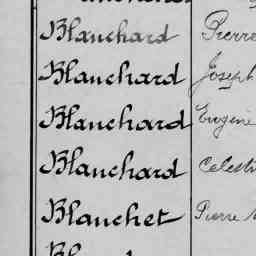 Blanchard Pierre
Blanchard Joseph
Blanchard Eugène
Blanchard
Blanchet Pierre